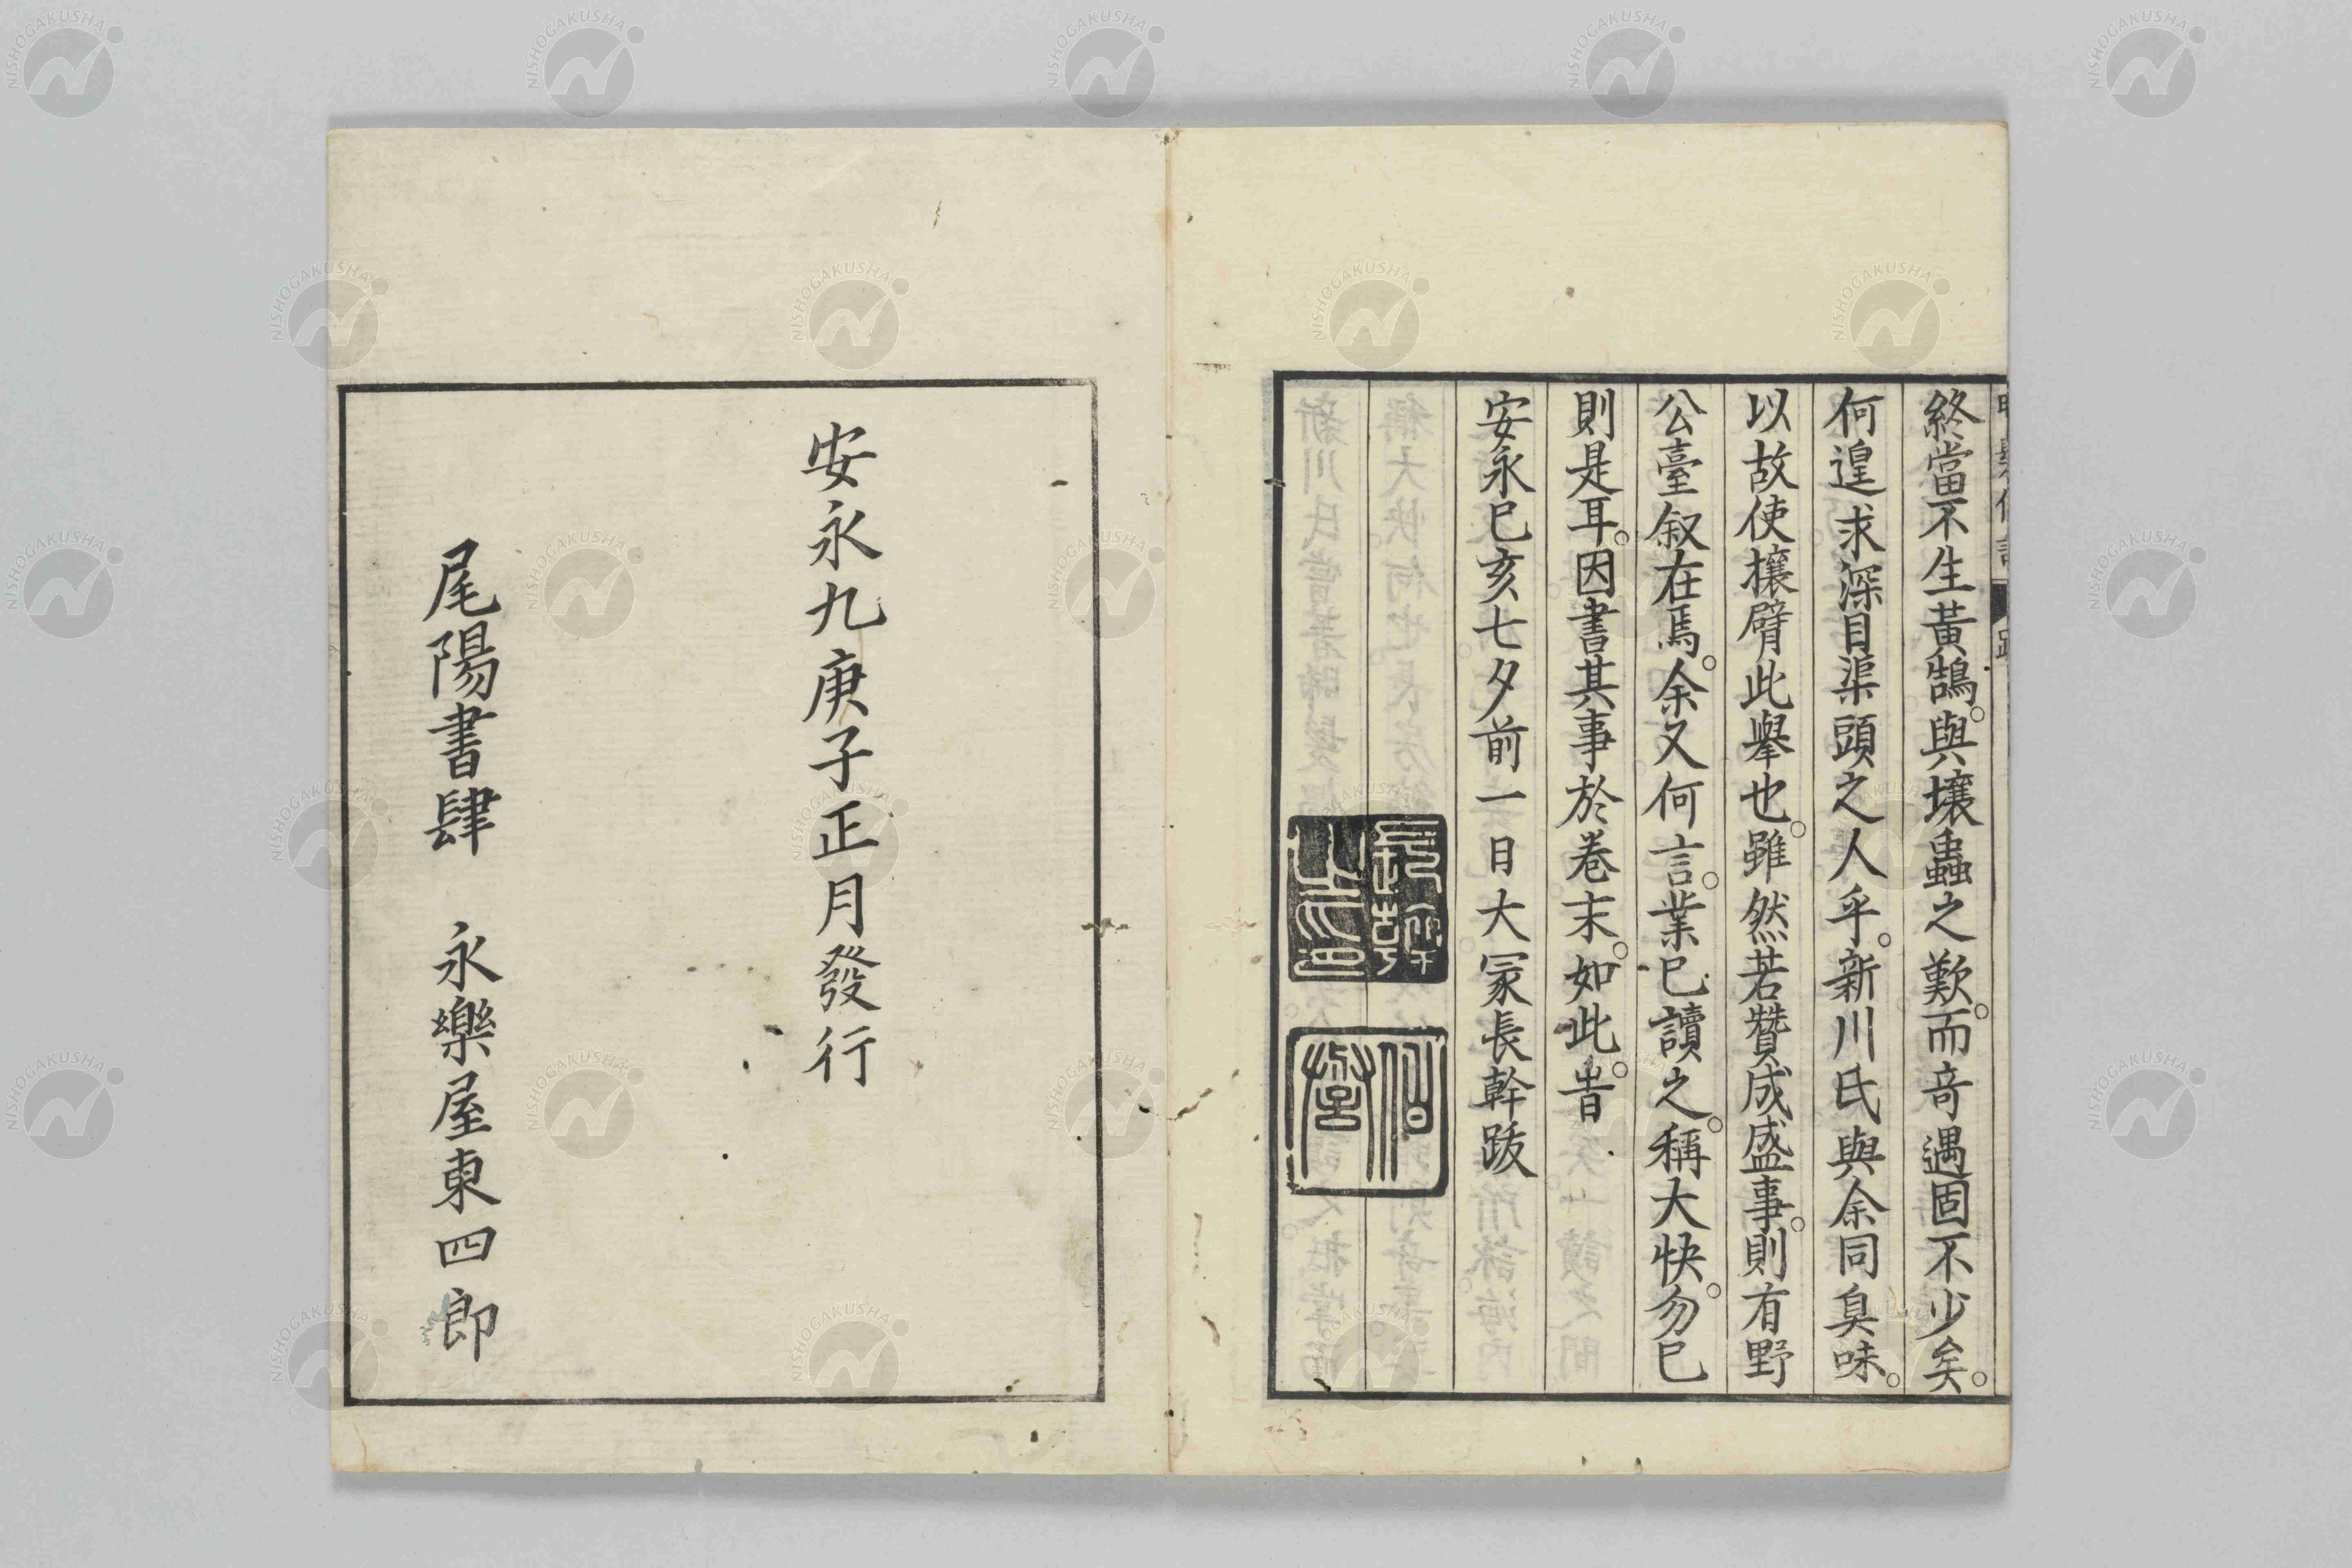 終當不生黃鵠。與壤蟲之歎。而奇遇固不少矣。
何遑求深目渠頭之人乎。新川氏與余同臭味。
以故使攘臂此擧也。雖然若贊成盛事。則有野
公臺叙在焉。余又何言。業已讀之。稱大快。勿已
則是耳。因書其事於卷末。如此。昔
安永己亥七夕前一日大冢長幹跋
安永九庚子正月發行
尾陽書肆 永樂屋東四郎
NISHOGAKUSHA